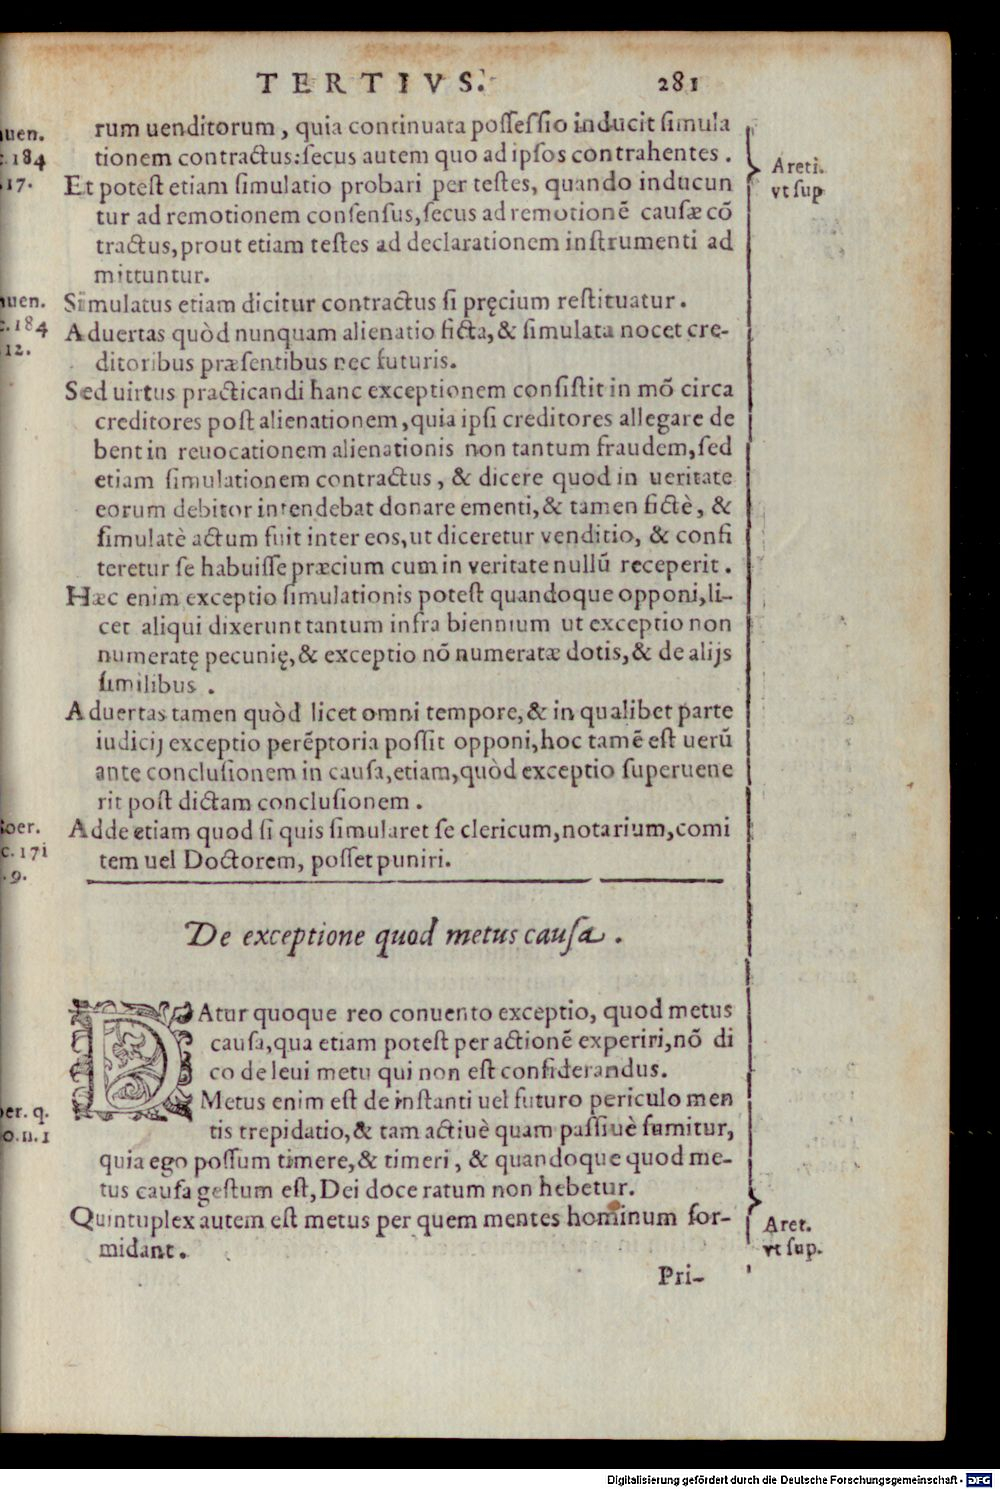 TERTIVS. 281
rum uenditorum, quia continuata possessio inducit simula
tionem contractus: secus autem quo ad ipsos contrahentes.
Et potest etiam simulatio probari per testes, quando inducun
tur ad remotionem consensus, secus ad remotionẽ causæ cõ
tractus, prout etiam testes ad declarationem instrumenti ad
mittuntur.
Simulatus etiam dicitur contractus si pręcium restituatur.
Aduertas quòd nunquam alienatio ficta, & simulata nocet cre-
ditoribus præsentibus nec futuris.
Sed uirtus practicandi hanc exceptionem consistit in mõ circa
creditores post alienationem, quia ipsi creditores allegare de
bent in reuocationem alienationis non tantum fraudem, sed
etiam simulationem contractus, & dicere quod in ueritate
eorum debitor intendebat donare ementi, & tamen fictè, &
simulatè actum fuit inter eos, ut diceretur venditio, & confi
teretur se habuisse præcium cum in veritate nullũ receperit.
Hæc enim exceptio simulationis potest quandoque opponi, li-
cet aliqui dixerunt tantum infra biennium ut exceptio non
numeratę pecunię, & exceptio nõ numeratæ dotis, & de alijs
similibus.
Aduertas tamen quòd licet omni tempore, & in qualibet parte
iudicij exceptio perẽptoria possit opponi, hoc tamẽ est uerũ
ante conclusionem in causa, etiam, quòd exceptio superuene
rit post dictam conclusionem.
Adde etiam quod si quis simularet se clericum, notarium, comi
tem uel Doctorem, posset puniri.
De exceptione quod metus causa.
DAtur quoque reo conuento exceptio, quod metus
causa, qua etiam potest per actionẽ experiri, nõ di
co de leui metu qui non est considerandus.
Metus enim est de instanti uel futuro periculo men
tis trepidatio, & tam actiuè quam passiuè sumitur,
quia ego possum timere, & timeri, & quandoque quod me-
tus causa gestum est, Dei doce ratum non hebetur.
Quintuplex autem est metus per quem mentes hominum for-
midant.
Pri-
uen.
c. 184
.17.
uen.
c. 184
12.
oer.
c. 171
.9.
er. q.
o.n.1
Areti.
vt sup
Aret.
vt sup.
Digitalisierung gefördert durch die Deutsche Forschungsgemeinschaft - DFG